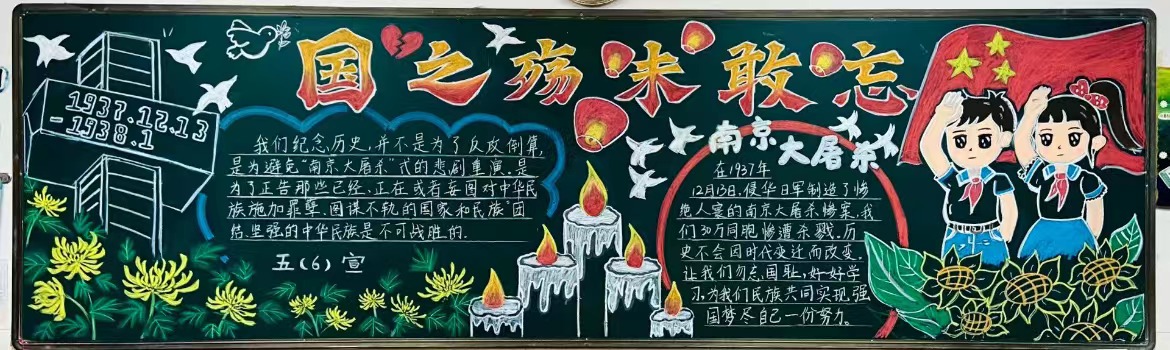 国之殇 未敢忘
1937.12.13
-1938.1
我们纪念历史,并不是为了反攻倒算,
是为避免"南京大屠杀"式的悲剧重演。是
为了正告那些已经、正在或者妄图对中华民
族施加罪孽、图谋不轨的国家和民族"团
结、坚强的中华民族是不可战胜的.
五(6)宣
南京
大屠杀
在1937年
12月13日,侵华日军制造了惨
绝人寰的南京大屠杀惨案,我
们30万同胞惨遭杀戮。历
史不会因时代变迁而改变.
让我们勿忘国耻,好好学
习,为我们民族共同实现强
国梦尽自己一份努力。